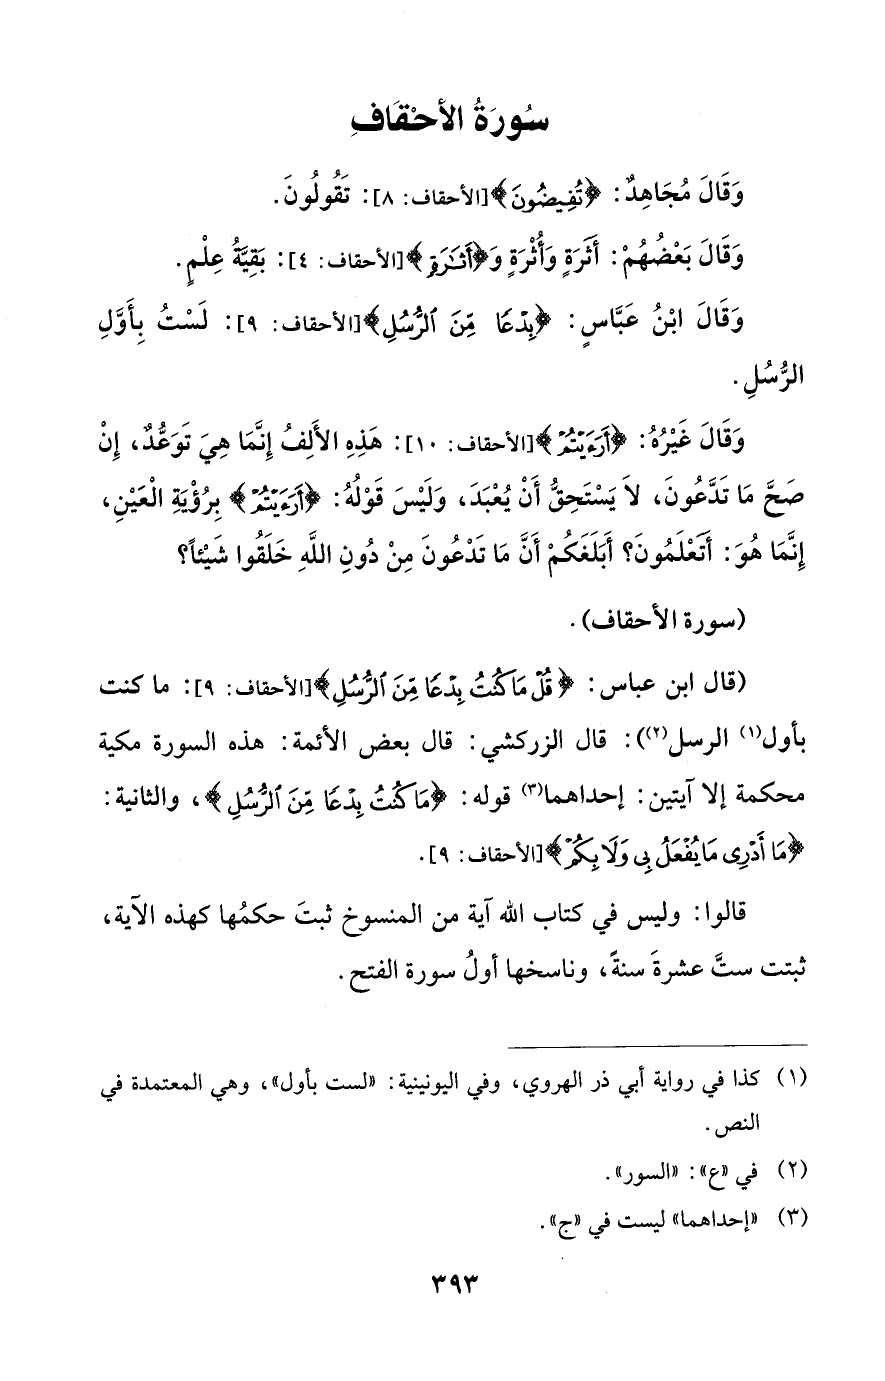 سُورَةُ الأَحْقَافِ
وَقَالَ مُجَاهِدٌ: ﴿تُفِيضُونَ﴾[الأحقاف: ٨]: تَقُولُونَ.
وَقَالَ بَعْضُهُمْ: أَثَرَةٍ وَأُثْرَةٍ وَ﴿أَثَٰرَةٍ﴾[الأحقاف: ٤]: بَقِيَّةُ عِلْمٍ.
وَقَالَ ابْنُ عَبَّاسٍ: ﴿بِدْعًا مِّنَ ٱلرُّسُلِ﴾[الأحقاف: ٩]: لَسْتُ بِأَوَّلِ
الرُّسُلِ.
وَقَالَ غَيْرُهُ: ﴿أَرَءَيْتُمْ﴾[الأحقاف: ١٠]: هَذِهِ الأَلِفُ إِنَّمَا هِيَ تَوَعُّدٌ، إِنْ
صَحَّ مَا تَدَّعُونَ، لاَ يَسْتَحِقُّ أَنْ يُعْبَدَ، وَلَيْسَ قَوْلُهُ: ﴿أَرَءَيْتُمْ﴾ بِرُؤْيَةِ الْعَيْنِ،
إِنَّمَا هُوَ: أَتَعْلَمُونَ؟ أَبَلَغَكُمْ أَنَّ مَا تَدْعُونَ مِنْ دُونِ اللَّهِ خَلَقُوا شَيْئاً؟
(سورة الأحقاف).
(قال ابن عباس: ﴿قُلْ مَا كُنتُ بِدْعًا مِّنَ ٱلرُّسُلِ﴾[الأحقاف: ٩]: ما كنت
بأول(١) الرسل(٢)): قال الزركشي: قال بعض الأئمة: هذه السورة مكية
محكمة إلا آيتين: إحداهما(٣) قوله: ﴿مَا كُنتُ بِدْعًا مِّنَ ٱلرُّسُلِ﴾، والثانية:
﴿مَا أَدْرِى مَا يُفْعَلُ بِى وَلَا بِكُمْ﴾[الأحقاف: ٩].
قالوا: وليس في كتاب الله آية من المنسوخ ثبتَ حكمُها كهذه الآية،
ثبتت ستَّ عشرةَ سنةً، وناسخها أولُ سورة الفتح.
(١) كذا في رواية أبي ذر الهروي، وفي اليونينية: «لست بأول»، وهي المعتمدة في
النص.
(٢) في «ع»: «السور».
(٣) «إحداهما» ليست في «ج».
٣٩٣